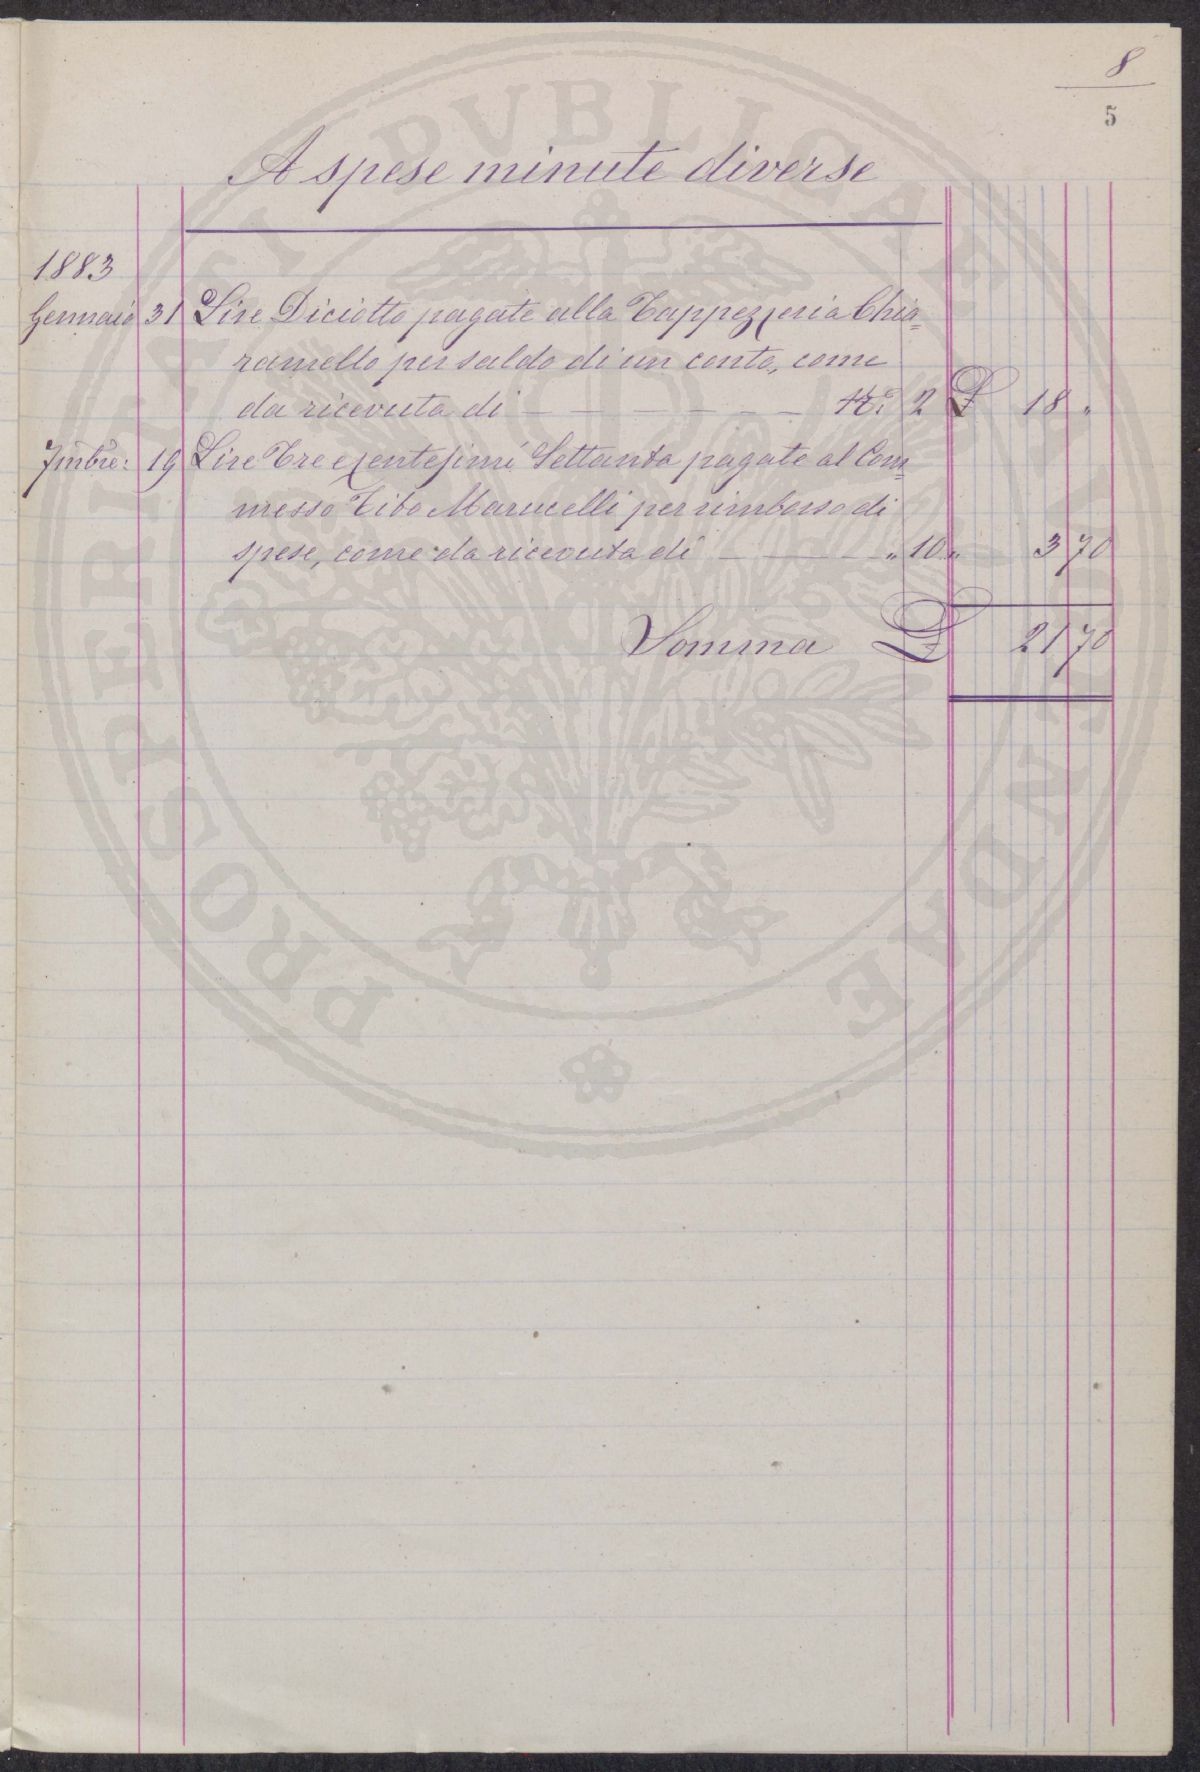 8
5
A spese minute diverse
1883
Gennaio 31 Lire Diciotto pagate alla Tappezzeria Chia=
ramello per saldo di un conto, come
da ricevuta di — — — — — — — No: 2 L 18 "
7mbre: 19 Lire Tre e centesimi Settanta pagate al Com=
messo Tito Marucelli per rimborso di
spese, come da ricevuta di — — — — " 10 " 3 70
Somma L 21 70
PROSPERITATI PVBLICAE AVGENDAE